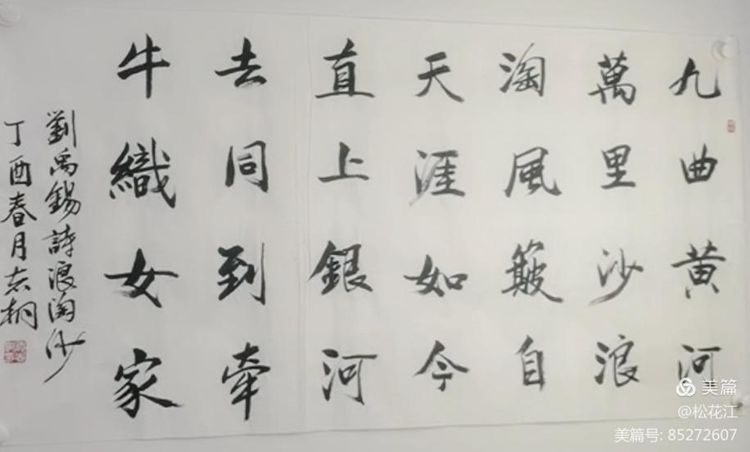 九曲黄河
萬里沙浪
淘風簸自
天涯如今
直上銀河
去同到牽
牛織女家
劉禹錫詩浪淘沙
丁酉春月志桐
美篇
@松花江
美篇号: 85272607